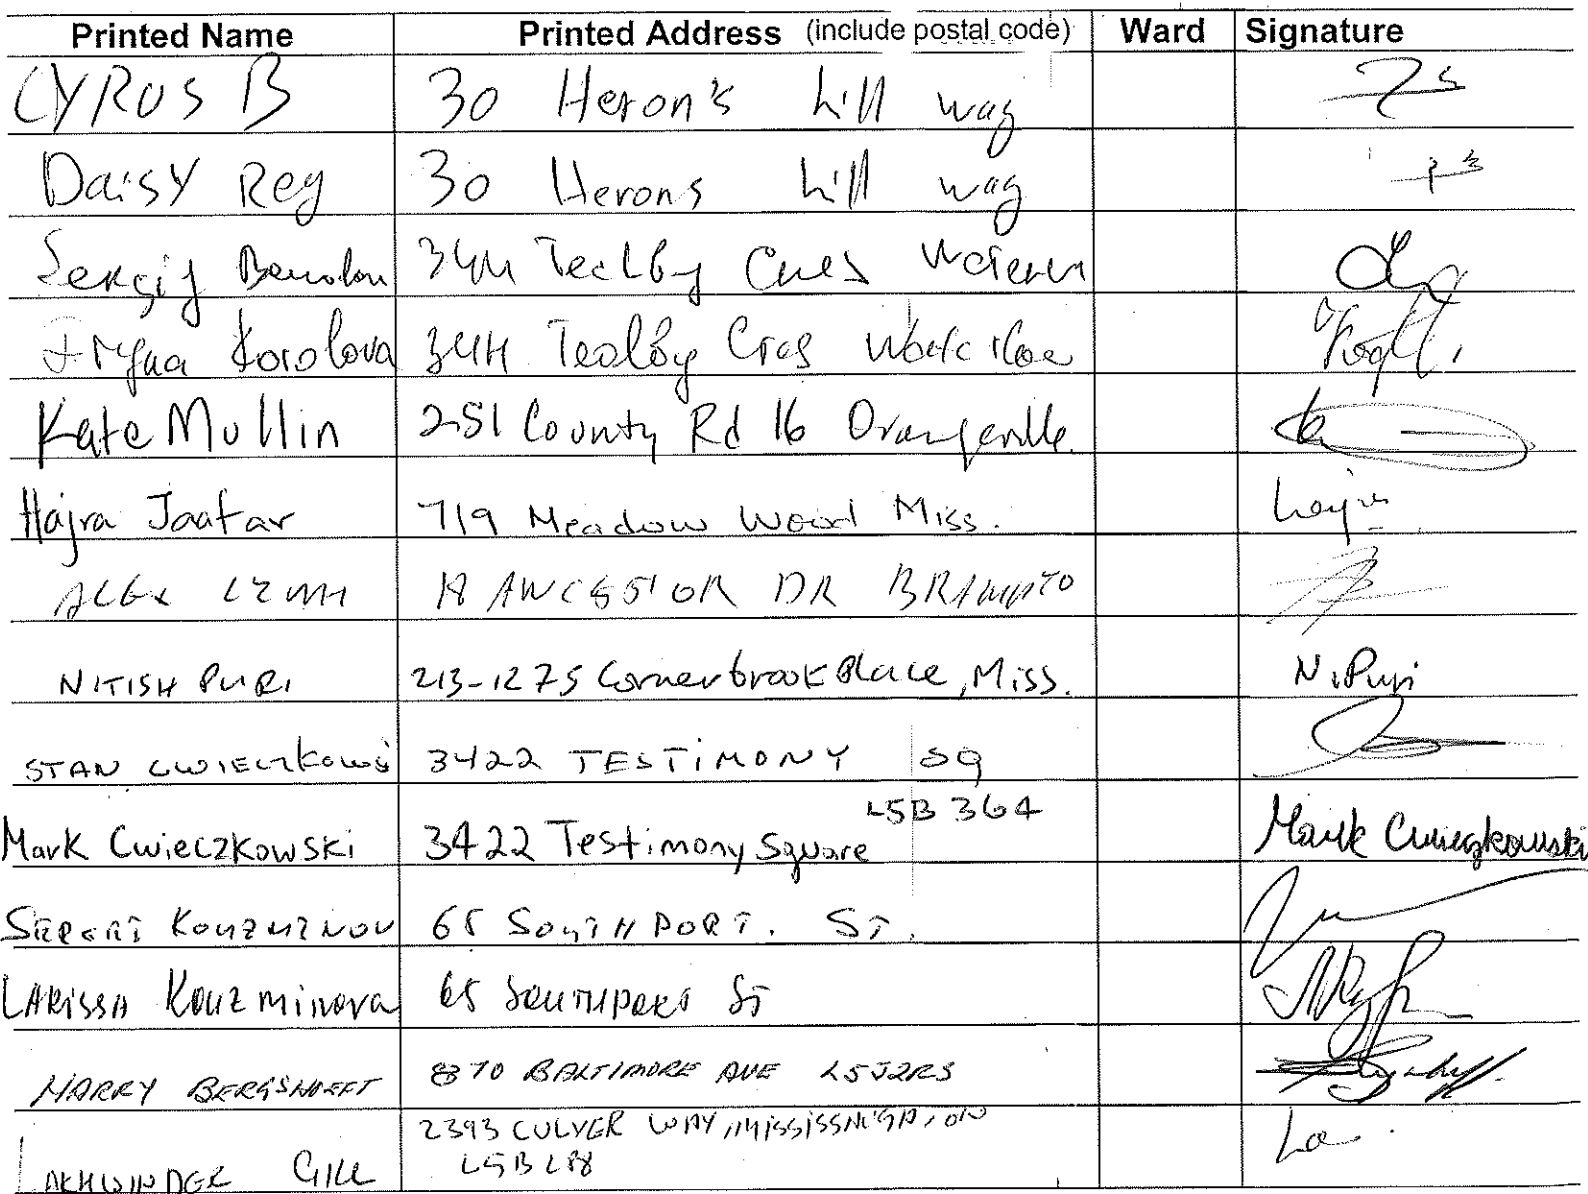 Printed Name Printed Address (include postal code) Ward Signature
CYRUS B 30 Heron's hill way
Daisy Rey 30 Herons hill way
Sergij 344 Tealby Cres
Iryna Korolova 344 Tealby Cres Waterloo
Kate Mullin 251 County Rd 16 Orangeville
Hajra Jaafar 719 Meadow Wood Miss. hajra
ALEX 18 ANCESTOR DR BRAMPTO
NITISH PURI 213-1275 Cornerbrook Place, Miss. N. Puri
STAN CWIECZKOWS 3422 TESTIMONY SQ
L5B 3G4
Mark Cwieczkowski 3422 Testimony Square Mark Cwieczkowski
KOUZMINOV 65 SOUTHPORT. ST.
LARISSA Kouzminova 65 SOUTHPORT ST
HARRY BERGSHOEFF 870 BALTIMORE AVE L5J2R3
2393 CULVER WAY, MISSISSAUGA, ON
L5B
LAKHWINDER GILL